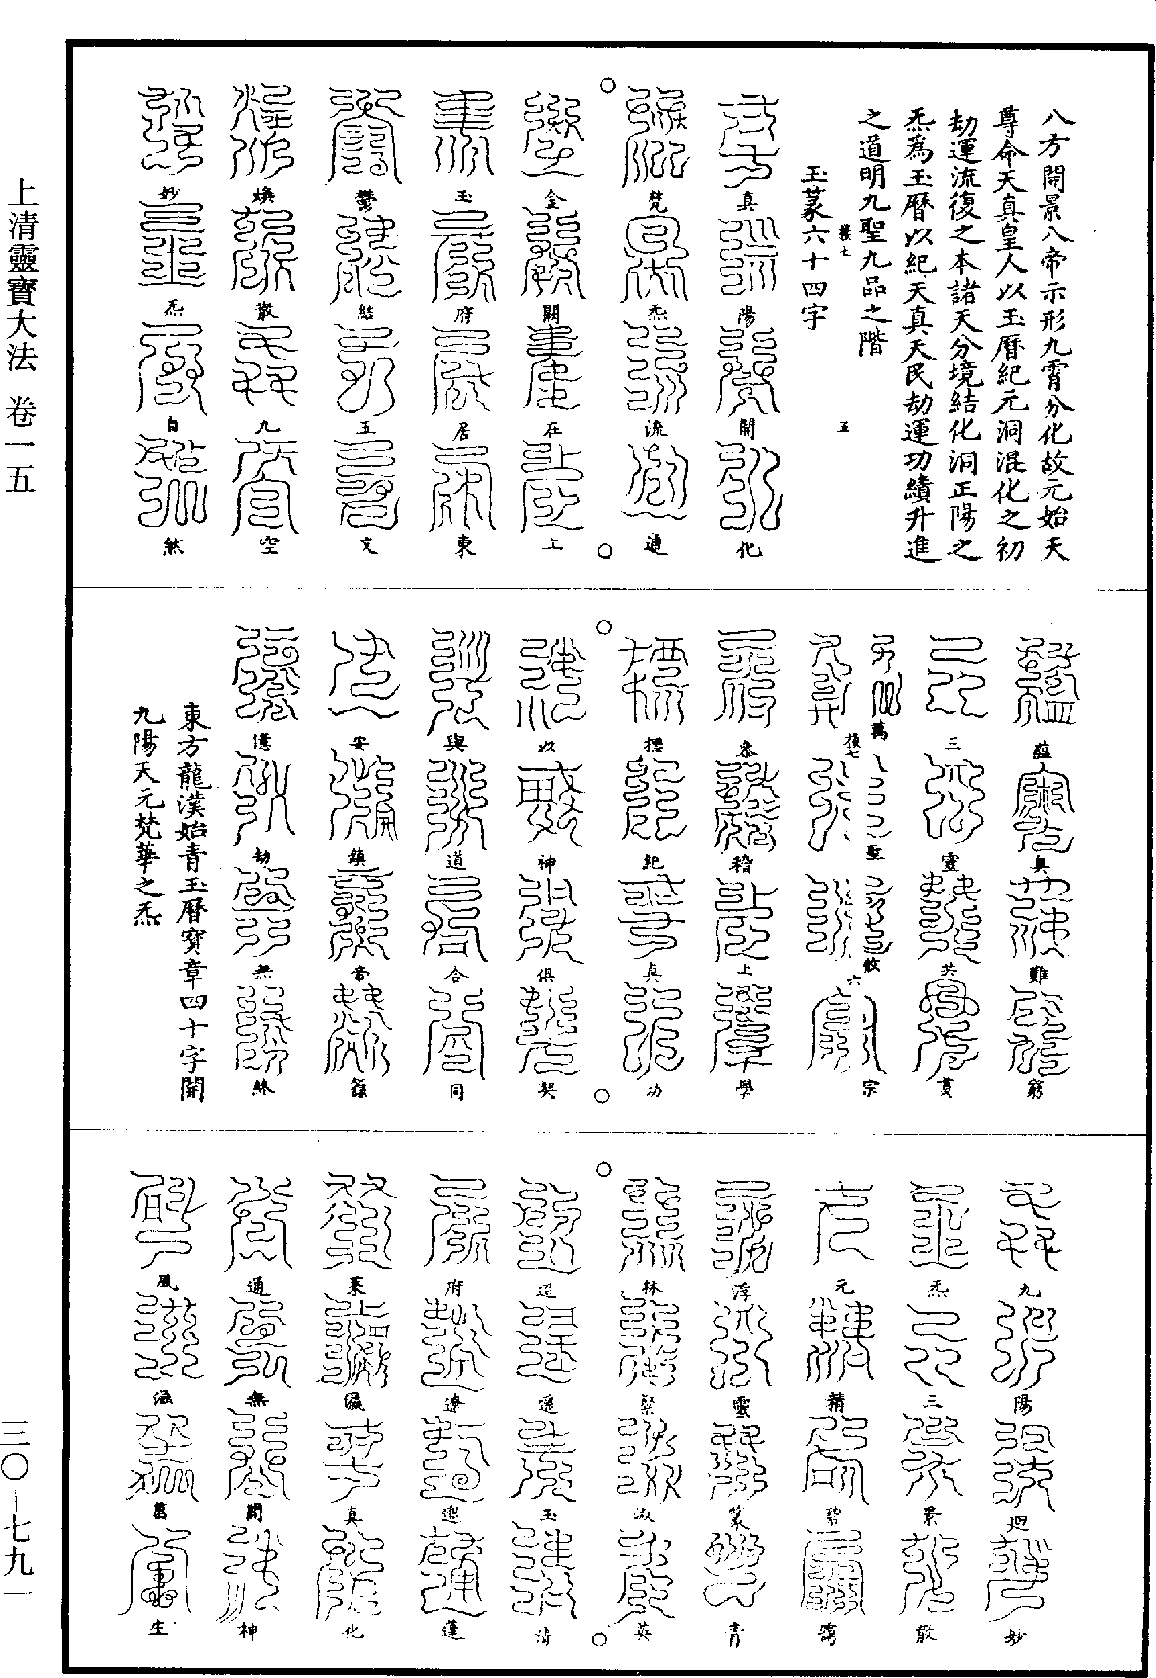 上清靈寶大法　卷一五
三〇－七九一
八方開景八帝示形九霄分化故元始天
尊命天真皇人以玉曆紀元洞混化之初
劫運流復之本諸天分境結化洞正陽之
炁為玉曆以紀天真天民劫運功績升進
之道明九聖九品之階
五
玉篆六十四字
真陽開化
梵炁流通
金闕在上
玉府居東
鬱結五文
煥散九空
妙炁自然
蘊奧難窮
三靈共貫
萬聖攸宗
六
參稽上學
標紀真功
以神俱契
與道合同
安鎮帝籙
億劫無終
東方龍漢始青玉曆寶章四十字開
九陽天元梵華之炁
九陽迴妙
炁三景散
元精碧
浮雲篆青
林聚淑英
逍遙玉清
府遼邈蓬
萊真化
通無關神
風混萬生